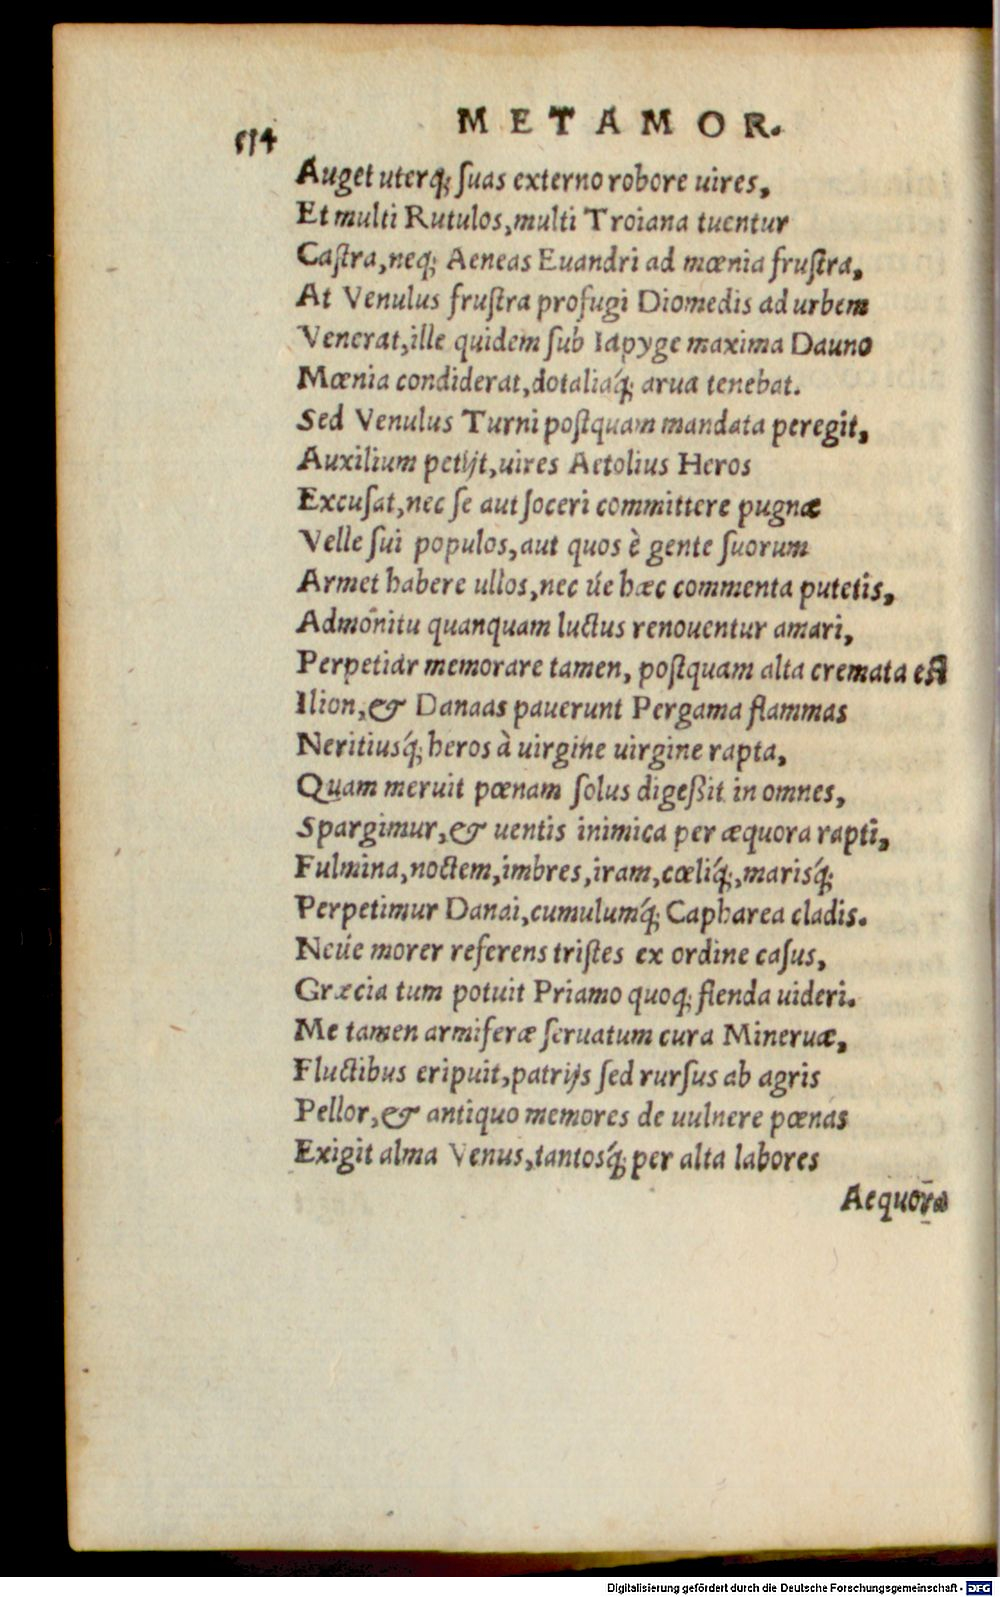 514
METAMOR.
Auget uterq; ſuas externo robore uires,
Et multi Rutulos, multi Troiana tuentur
Caſtra, neq; Aeneas Euandri ad mœnia fruſtra,
At Venulus fruſtra profugi Diomedis ad urbem
Venerat, ille quidem ſub Iapyge maxima Dauno
Mœnia condiderat, dotaliaq́; arua tenebat.
Sed Venulus Turni poſtquam mandata peregit,
Auxilium petijt, uires Aetolius Heros
Excuſat, nec ſe aut ſoceri committere pugnæ
Velle ſui populos, aut quos è gente ſuorum
Armet habere ullos, nec úe hæc commenta putetis,
Admonitu quanquam luctus renouentur amari,
Perpetiar memorare tamen, poſtquam alta cremata eſt
Ilion, & Danaas pauerunt Pergama flammas
Neritiusq́; heros à uirgine uirgine rapta,
Quam meruit pœnam ſolus digeßit in omnes,
Spargimur, & uentis inimica per æquora rapti,
Fulmina, noctem, imbres, iram, cœliq́;, marisq́;
Perpetimur Danai, cumulumq́; Capharea cladis.
Neúe morer referens triſtes ex ordine caſus,
Græcia tum potuit Priamo quoq; flenda uideri.
Me tamen armiferæ ſeruatum cura Mineruæ,
Fluctibus eripuit, patrijs ſed rurſus ab agris
Pellor, & antiquo memores de uulnere pœnas
Exigit alma Venus, tantosq́; per alta labores
Aequora
Digitalisierung gefördert durch die Deutsche Forschungsgemeinschaft - DFG